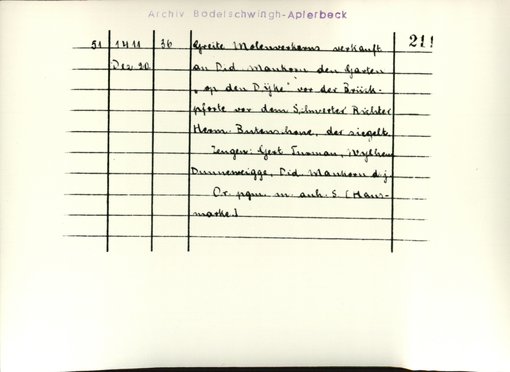 Archiv Bodelschwingh-Aplerbeck
211
51 1411 36 Greite Molenverkorns verkauft
Dez 20 an Did. Mankorn den Garten
„op den Dyke" vor der Brück-
pforte vor dem Schwerter Richter
Herm. Butenschone, der siegelt.
Zeugen: Gert Turman, Wylhem
Dunneweigge, Did. Mankorn d. j.
Or. pgm. m. anh. S. (Haus-
marke)